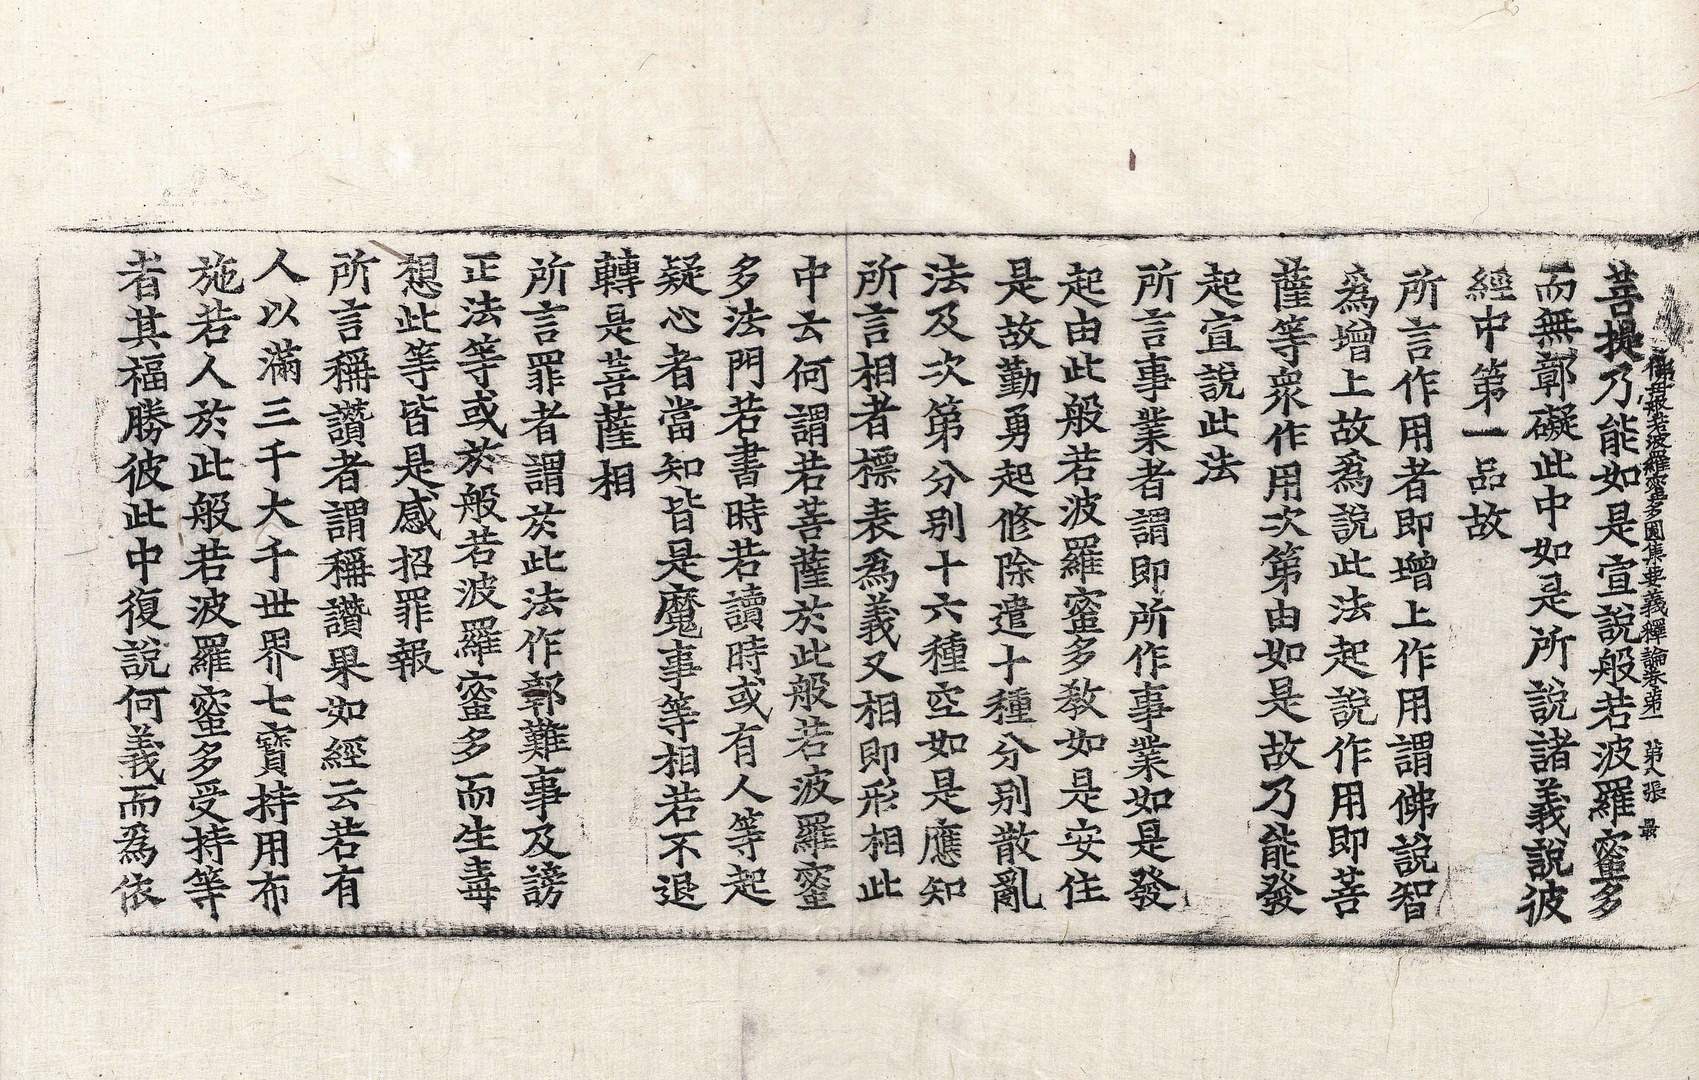 佛母般若波羅蜜多圓集要義釋論卷第一 第八張 最
菩提乃能如是宣說般若波羅蜜多
而無鄣礙此中如是所說諸義說彼
經中第一品故
所言作用者即增上作用謂佛說智
爲增上故爲說此法起說作用即菩
薩等衆作用次第由如是故乃能發
起宣說此法
所言事業者謂即所作事業如是發
起由此般若波羅蜜多教如是安住
是故勤勇起修除遣十種分别散亂
法及次第分别十六種空如是應知
所言相者標表爲義又相即形相此
中云何謂若菩薩於此般若波羅蜜
多法門若書時若讀時或有人等起
疑心者當知皆是魔事等相若不退
轉是菩薩相
所言罪者謂於此法作鄣難事及謗
正法等或於般若波羅蜜多而生毒
想此等皆是感招罪報
所言稱讚者謂稱讚果如經云若有
人以滿三千大千世界七寶持用布
施若人於此般若波羅蜜多受持等
者其福勝彼此中復說何義而爲依